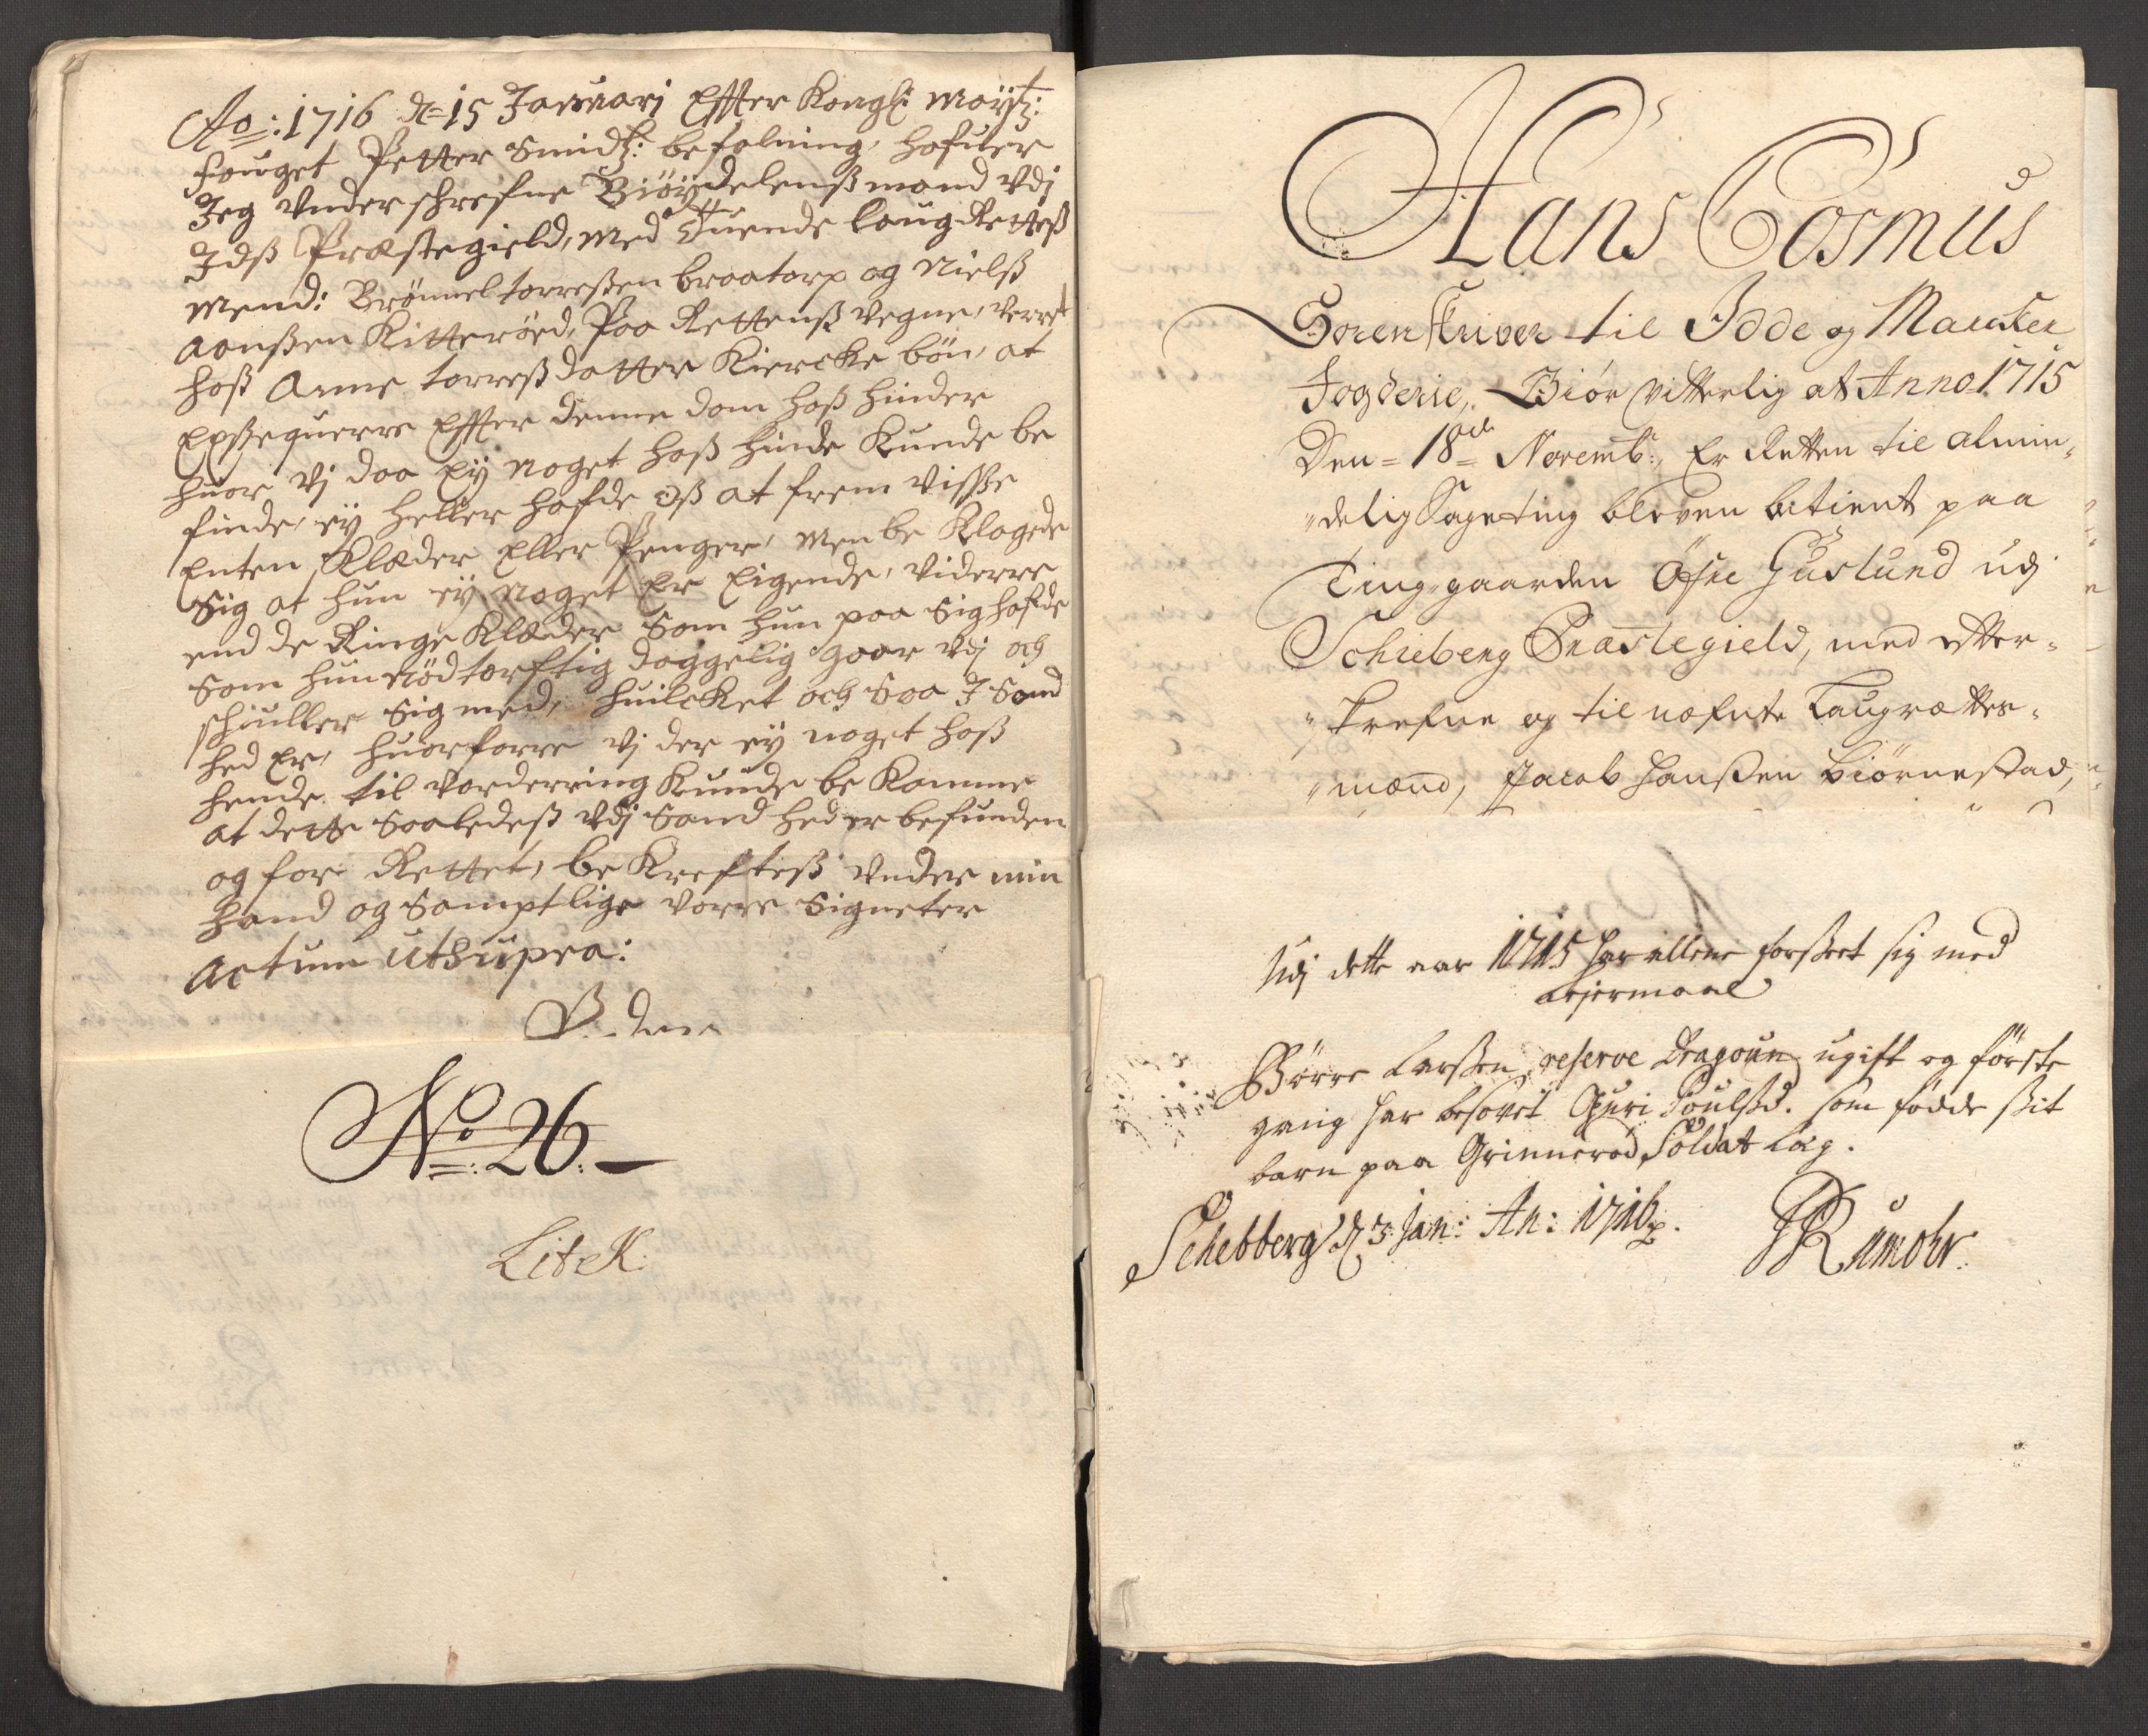 Ao: 1716 d= 15 Januari Effter Kongl: Mayttz:
fouget Petter Smidtz: befalning, hafuer
Jeg Vnderschrefne Biøydelenssmand Vdj
Idss Præstegield, med ttuende laug Rettess
Mend: Brønnel torressen braatorp og Nielss
Aanssen Kitterøed, Paa Rettenss Vegne, verret
hoss Anne torressdatter Kiercke bøn, at
Exssequerre Effter denne dom hoss hinder
huor Vj daa Ey noget hoss hinde Kunde be
finde, ey heller hafde oss at frem visse
Enten Klæder Eller Penger, Men be Klagede
Sig at hun ey noget Er Eigende, viderre
end de Ringe Klæder Som hun paa Sig hafde
Som hun Nødtørftig daggelig gaar Vdj och
schiuller Sig med, huilcket och Saa I Sand
hed Er, huorforre Vj der ey noget hoss
hende til Vorderring Kunde be Komme
at dette Saaledess Vdj Sandhed er befunden
og for Rettet, be Krefftess Vnder min
Hand og Samptlige Vorre Signeter
Actum Utsupra:
No: 26.
Lit K:
Hans Cosmus
Sorenskriver til Idde og Marcker
Fogderie, Giør Vitterlig at Anno 1715
Den = 18de Novemb: Er Retten til almin„
„delig Sageting bleven betient paa
Ting-gaarden Øfre Guslund udj
Schieberg Præstegield, med efter„
„skrefne og til næfnte Laugrættes„
„mænd, Jacob Hanssen Biørnestad,
Udj dette aar 1715 har allene forsseet sig med
lejermaal
Børre Larssen, reserve Dragoun ugift og første
gang har besovet Guri Poulssd. som fødde ssit
barn paa Grinnerød Soldat lag.
Schebberg d 3 Jan: An: 1716.
Rumohr.